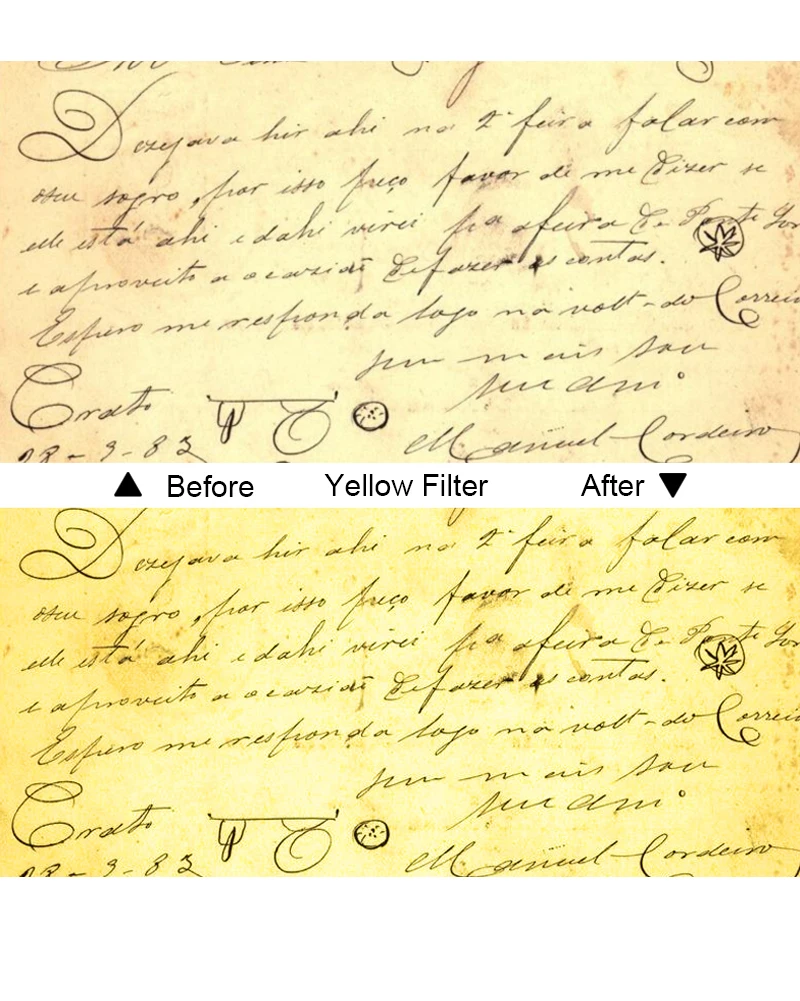 Dezejava hir ahi na 2ª feira falar com
oseu sogro, por isso peço favor de me Dizer se
elle está ahi e dahi virei p.a afeira de Ponte
e aproveito a ocazião Defazer as contas.
Espero me responda logo na volt-do Correio
sou
Crato
28-3-83
Manuel Cordeiro
▲ Before Yellow Filter After ▼
Dezejava hir ahi na 2ª feira falar com
oseu sogro, por isso peço favor de me Dizer se
elle está ahi e dahi virei p.a afeira de Ponte
e aproveito a ocazião Defazer as contas.
Espero me responda logo na volt-do Correio
sou
Crato
28-3-83
Manuel Cordeiro